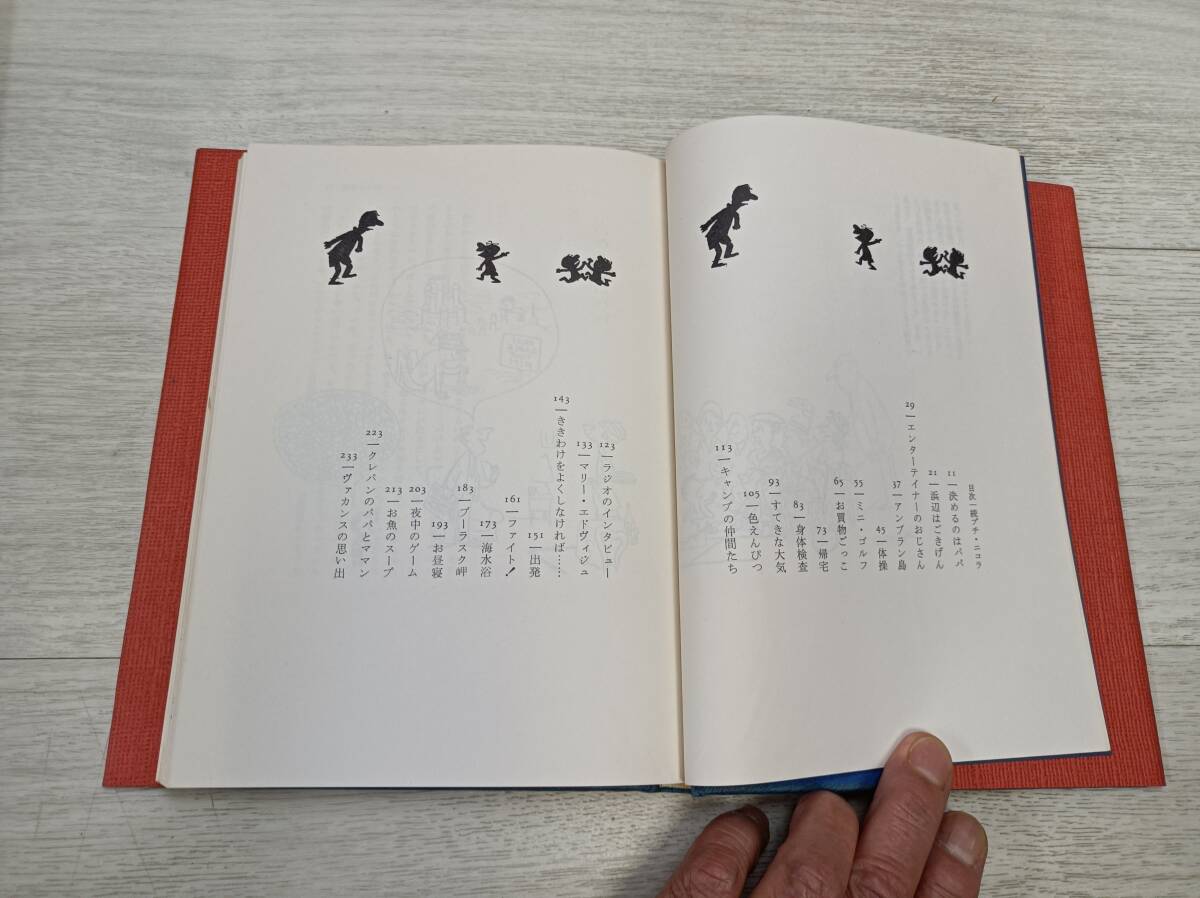 目次—続プチ・ニコラ
11—決めるのはパパ
21—浜辺はごきげん
29—エンターテイナーのおじさん
37—アンブラン島
45—体操
55—ミニ・ゴルフ
65—お買物ごっこ
73—帰宅
83—身体検査
93—すてきな大気
105—色えんぴつ
113—キャンプの仲間たち
123—ラジオのインタビュー
133—マリー・エドヴィジュ
143—ききわけをよくしなければ……
151—出発
161—ファイト!
173—海水浴
183—ブーラスク岬
193—お昼寝
203—夜中のゲーム
213—お魚のスープ
223—クレパンのパパとママン
233—ヴァカンスの思い出